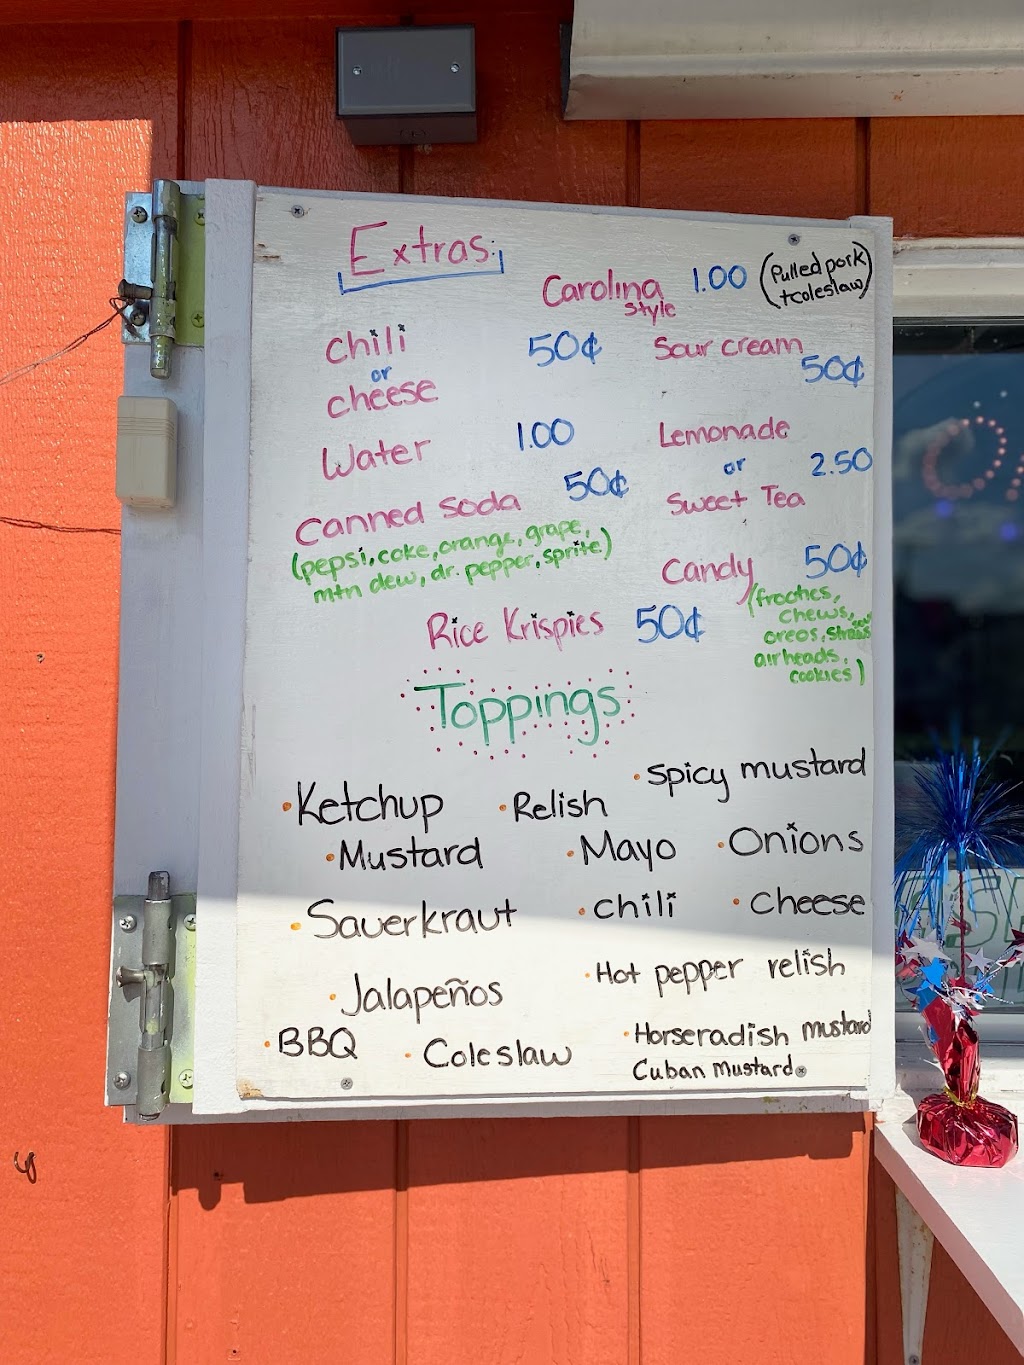 Extras:
Carolina Style 1.00 (Pulled pork
+coleslaw)
chili
or
cheese 50¢
Sour cream
50¢
Water 1.00
Lemonade
or 2.50
Sweet Tea
Canned Soda 50¢
(pepsi, coke, orange, grape,
mtn dew, dr. pepper, sprite)
Candy 50¢
(frooties,
chews,
oreos,
airheads,
cookies)
Rice Krispies 50¢
Toppings
Ketchup
Relish
Spicy mustard
Mustard
Mayo
Onions
Sauerkraut
chili
cheese
Jalapeños
Hot pepper relish
BBQ
Coleslaw
Horseradish mustard
Cuban Mustard